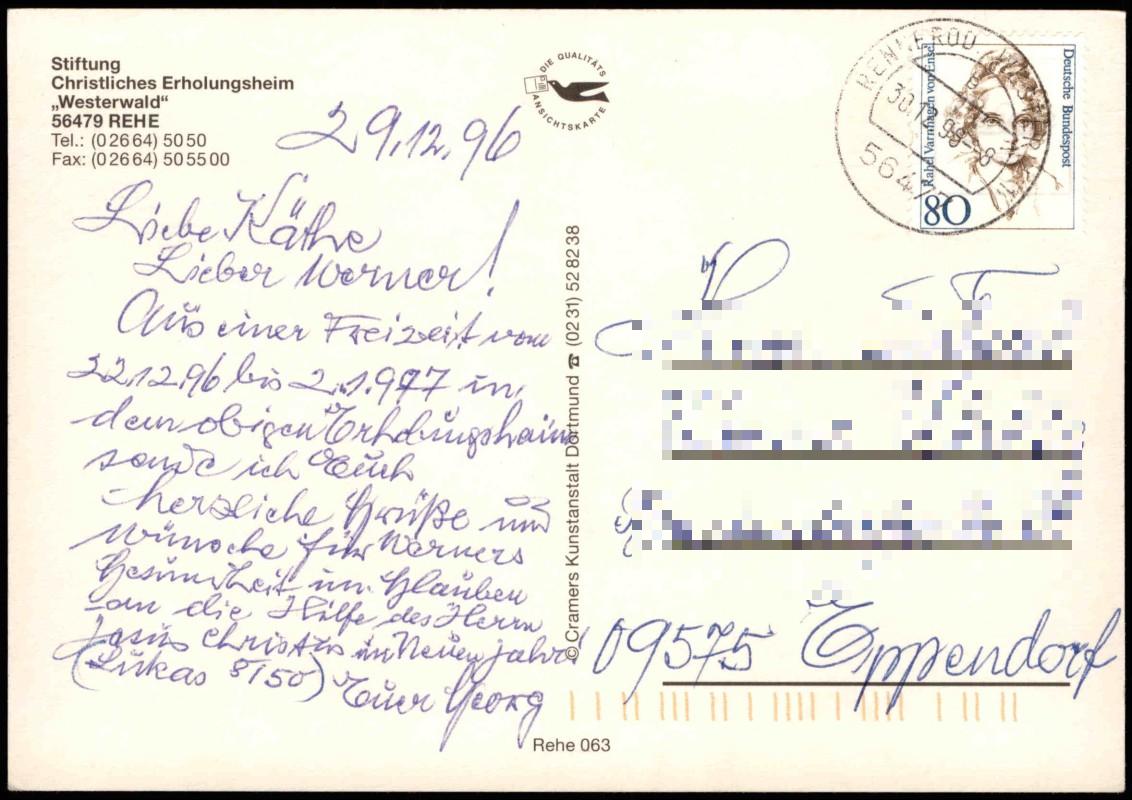 Stiftung
Christliches Erholungsheim
„Westerwald“
56479 REHE
Tel.: (0 26 64) 50 50
Fax: (0 26 64) 50 55 00
DIE QUALITÄTS
ANSICHTSKARTE
29.12.96
Liebe Käthe
Lieber Werner!
Aus einer Freizeit vom
22.12.96 bis 2.1.977 in
dem obigen Erholungsheim
sende ich Euch
herzliche Grüße und
wünsche für Werners
Gesundheit im Glauben
an die Hilfe des Herrn
Jesus Christus im Neuen Jahre
(Lukas 8/50) Euer Georg
© Cramers Kunstanstalt Dortmund ☎ (02 31) 52 82 38
RENNEROD
30.12.96-8
Rahel Varnhagen von Ense
Deutsche Bundespost
80
09575 Eppendorf
Rehe 063